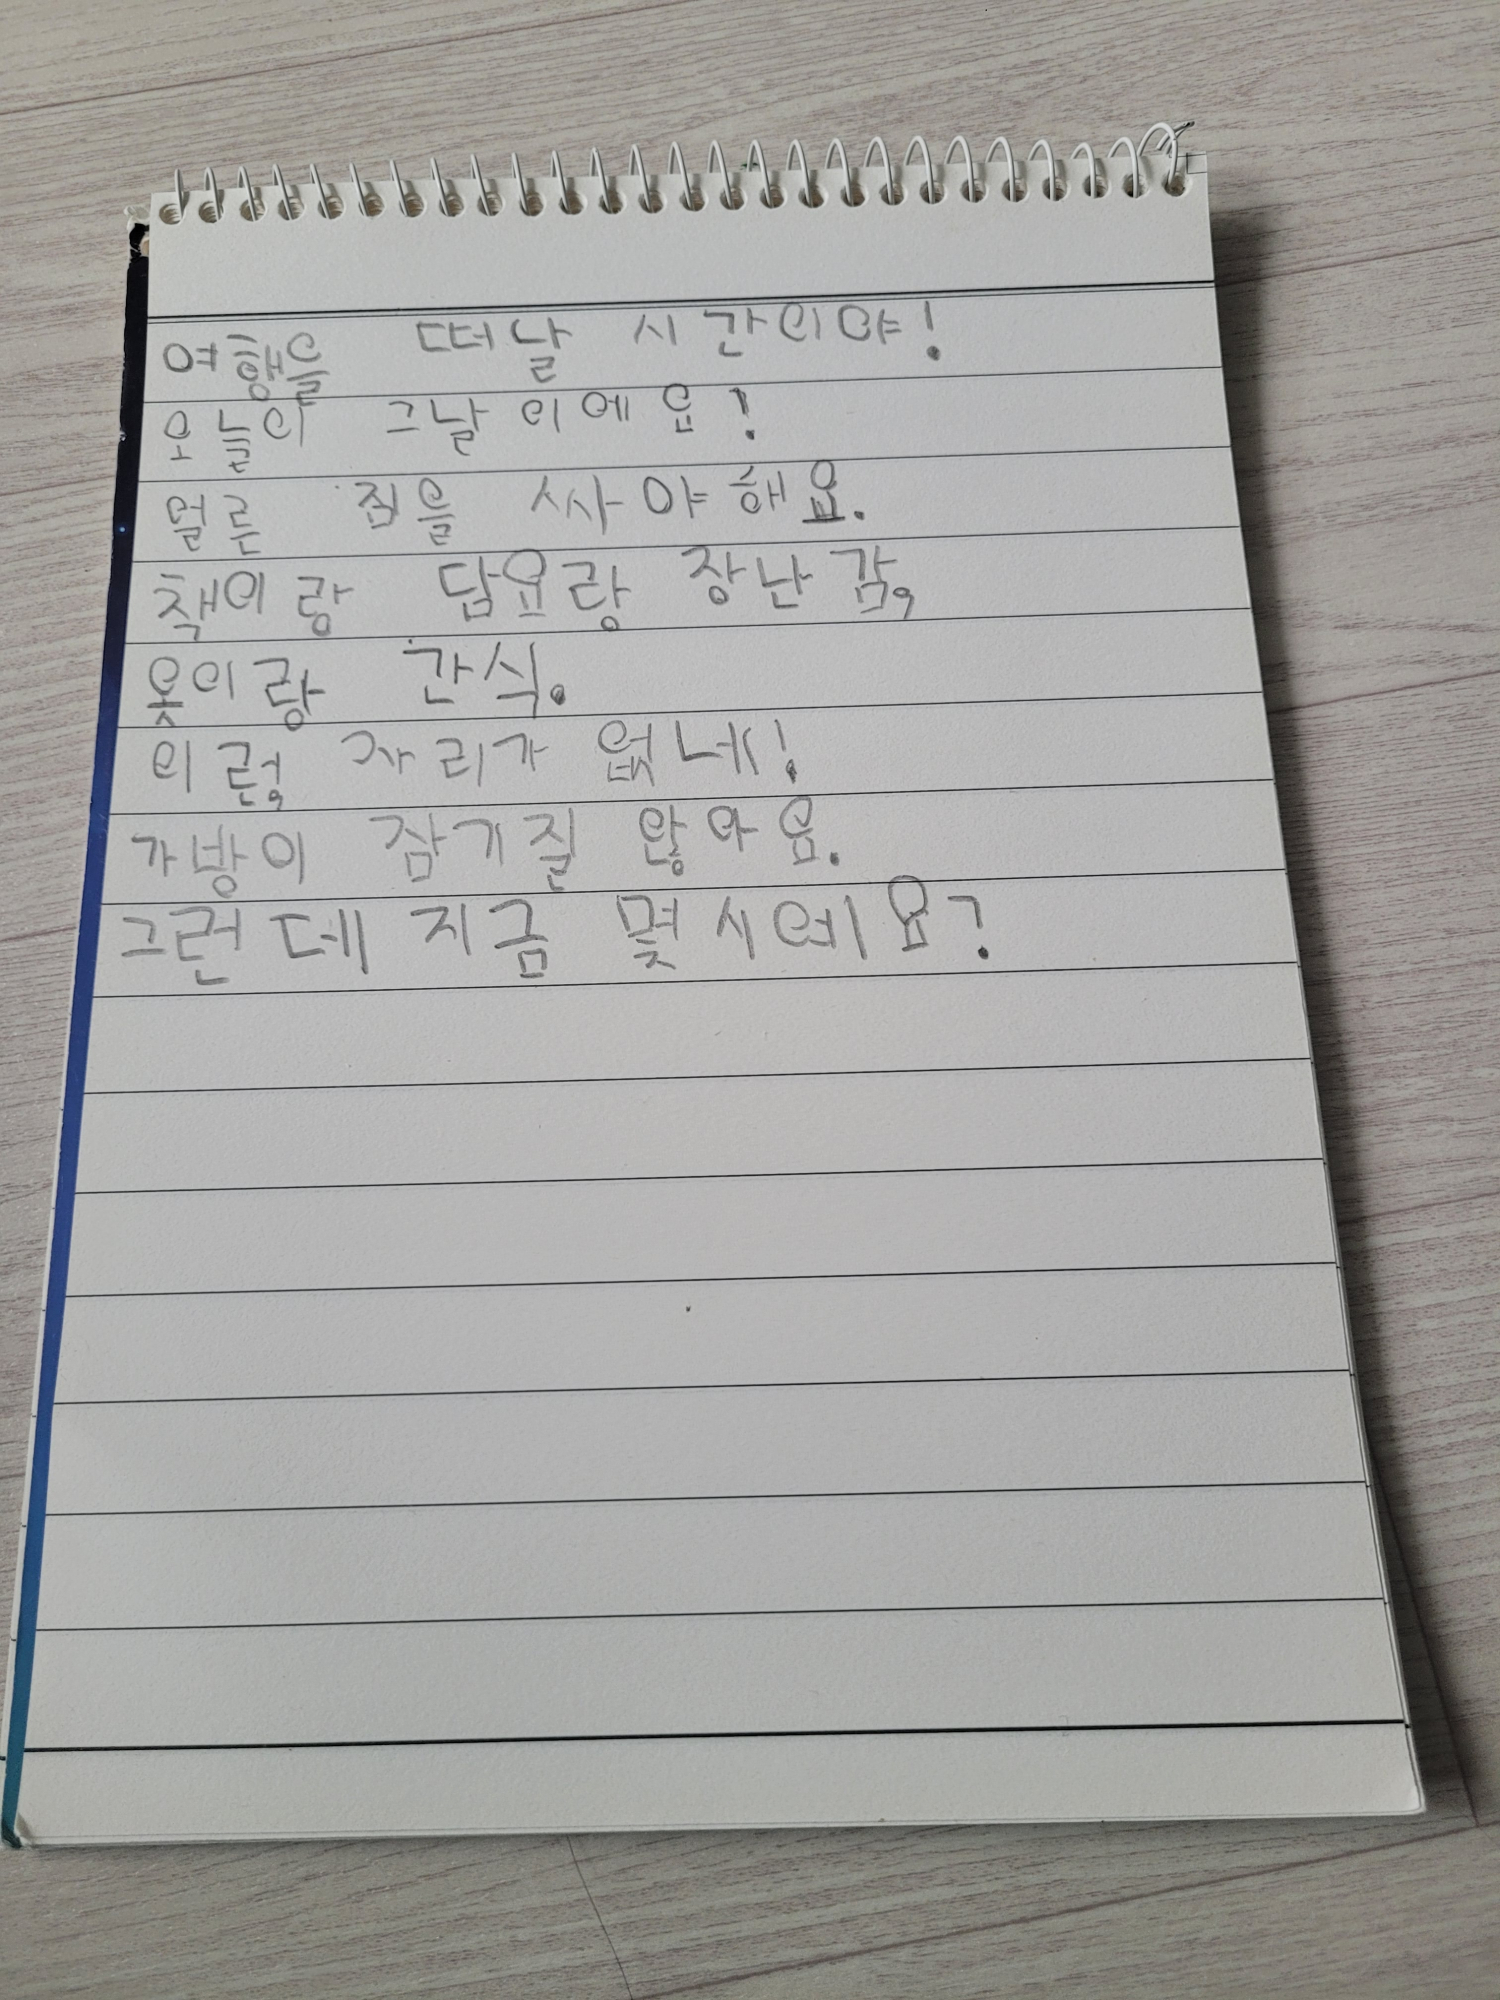 여행을 떠날 시간이야!
오늘이 그날이에요!
얼른 짐을 싸야해요.
책이랑 담요랑 장난감,
옷이랑 간식.
이런, 자리가 없네!
가방이 잠기질 않아요.
그런데 지금 몇시예요?